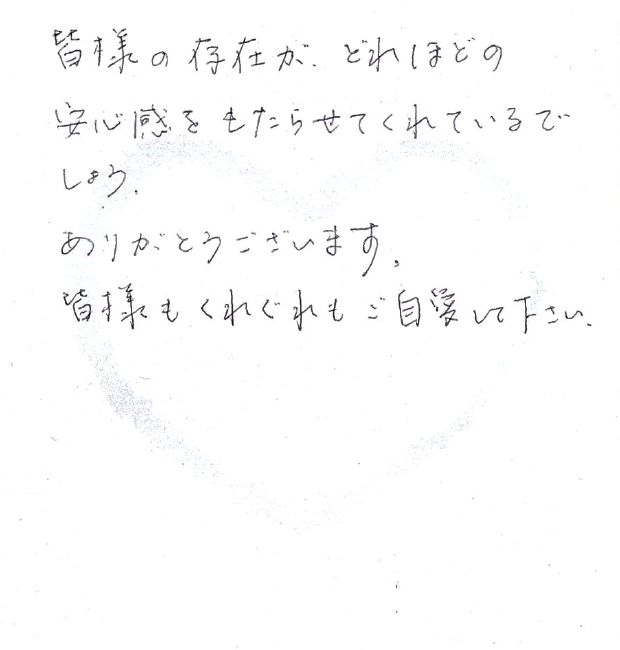 皆様の存在が、どれほどの
安心感をもたらせてくれているで
しょう。
ありがとうございます。
皆様もくれぐれもご自愛して下さい。